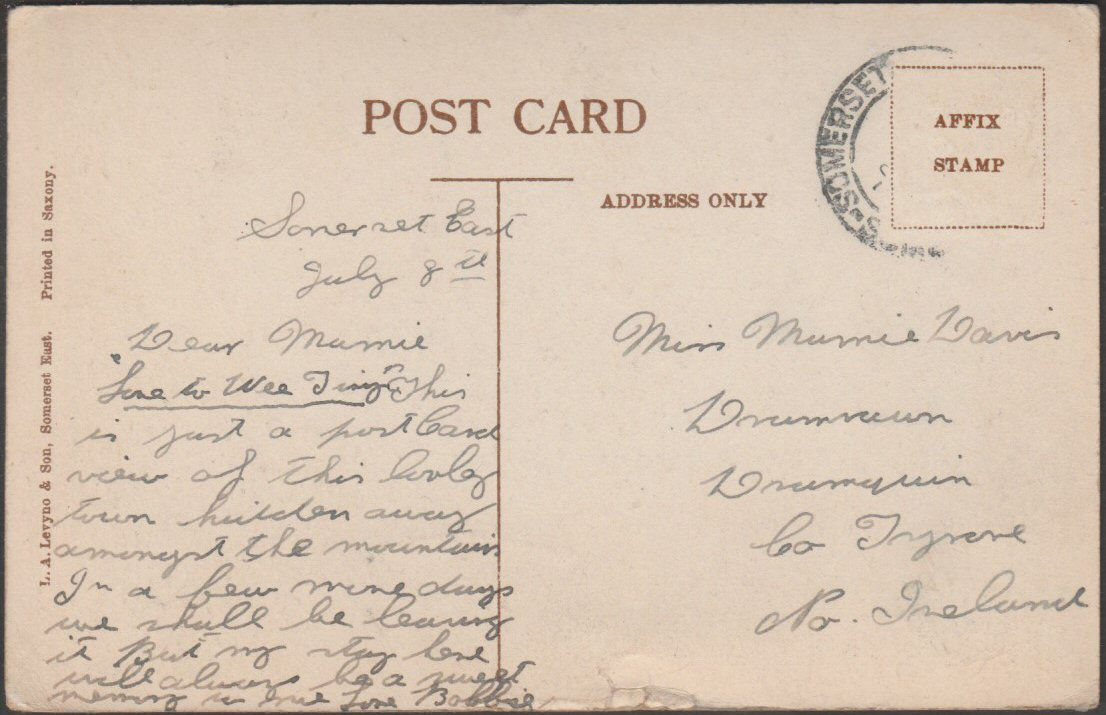 POST CARD
ADDRESS ONLY
AFFIX
STAMP
SOMERSET
L. A. Levyno & Son, Somerset East. Printed in Saxony.
Somerset East
July 8th
Dear Mamie
"Love to Wee Tiny" This
is just a post Card
view of this lovley
town hidden away
amongst the mountains
In a few more days
we shall be leaving
it But my stay here
will always be a sweet
memory to me Love Bobbie
Miss Mamie Davis
Drumrawn
Drumquin
Co Tyrone
No. Ireland